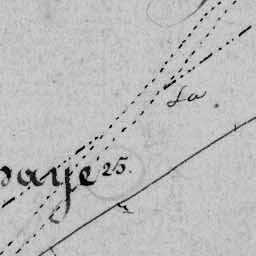 La
paye 25.